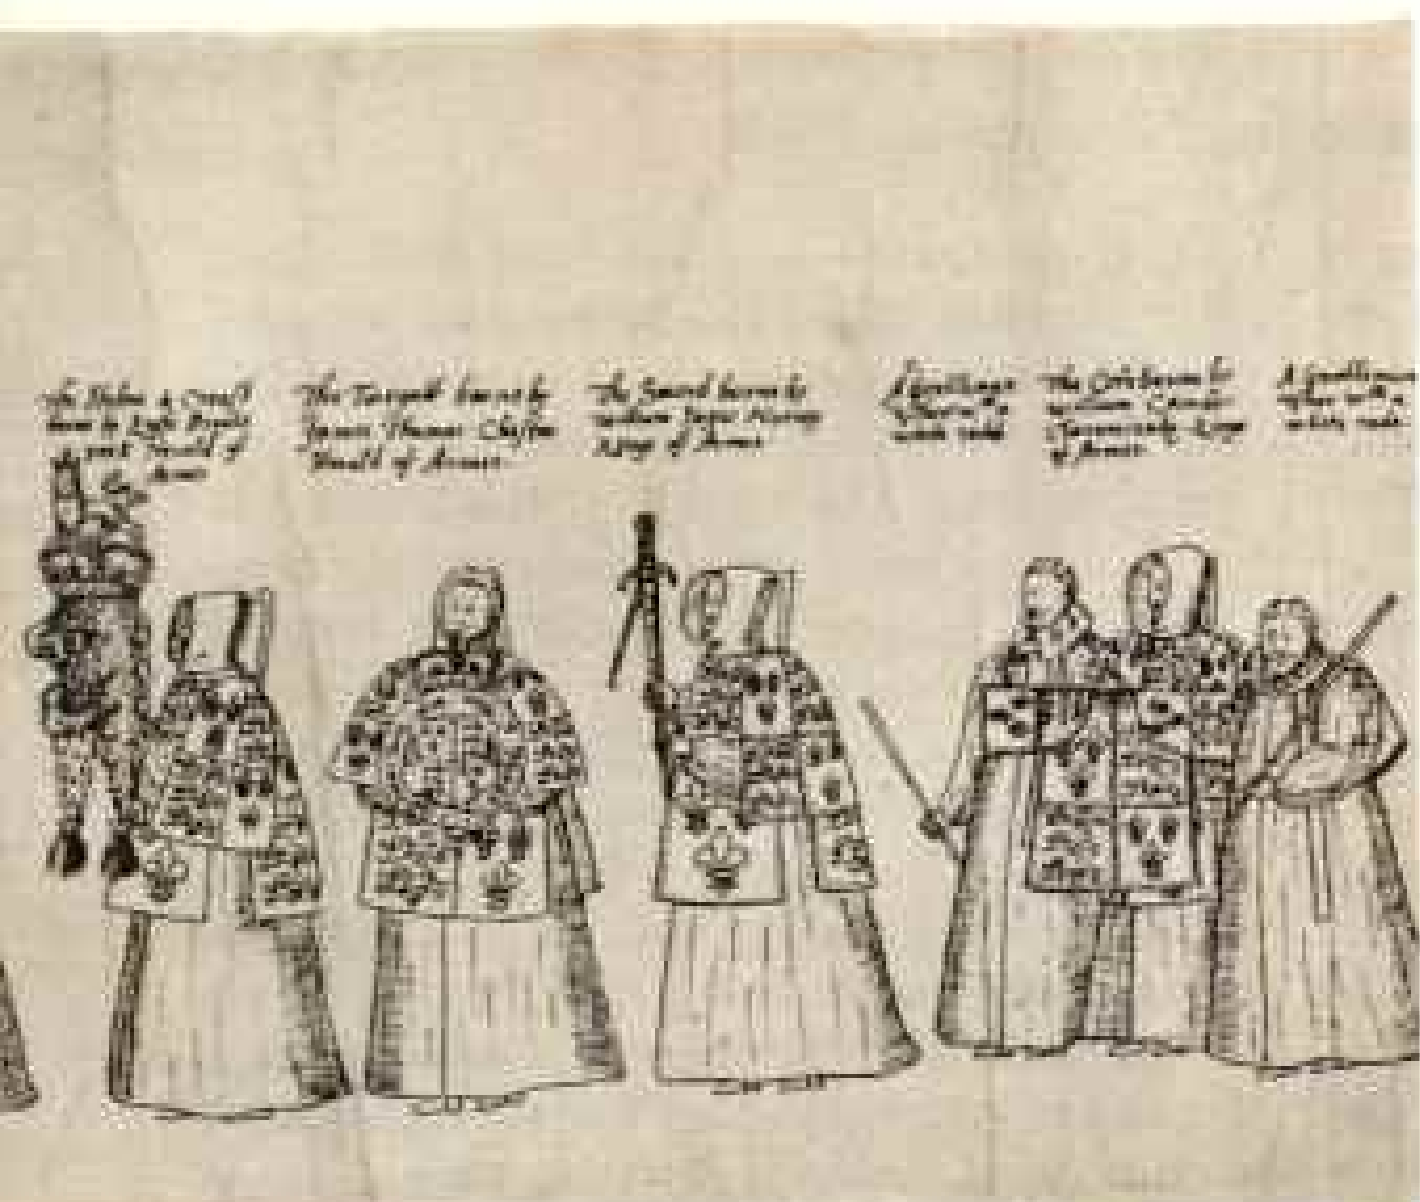 The Helme & Creast
borne by
Herald of
Armes
The Targett borne by
James Thomas Chester
Herald of Armes
The Sword borne by
William Segar Norroy
King of Armes
A Gentleman
Usher with a
white rodd
The Cote borne by
William Camden
Clarenceulx King
of Armes
A Gentleman
Usher with a
white rodd